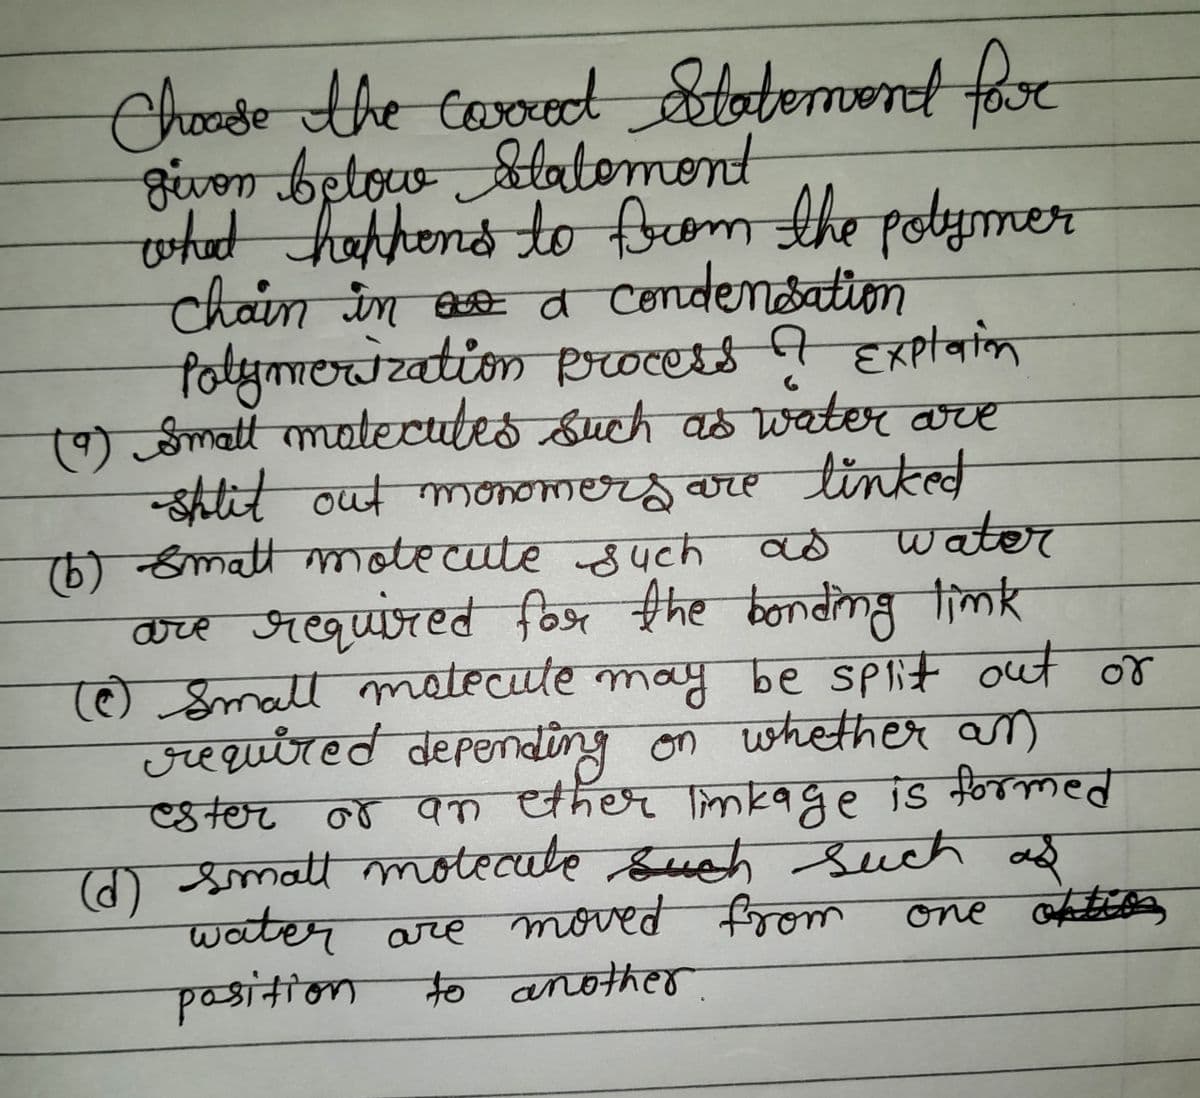 Choose the correct Statement for
given below Statement
what happens to from the polymer
chain in a condensation
Polymerization process ? Explain
(a) Small molecules such as water are
split out monomers are linked
(b) Small molecule such as water
are required for the bonding link
(c) Small molecule may be split out or
required depending on whether an
ester or an ether linkage is formed
(d) Small molecule such such as
water are moved from one option
position to another.